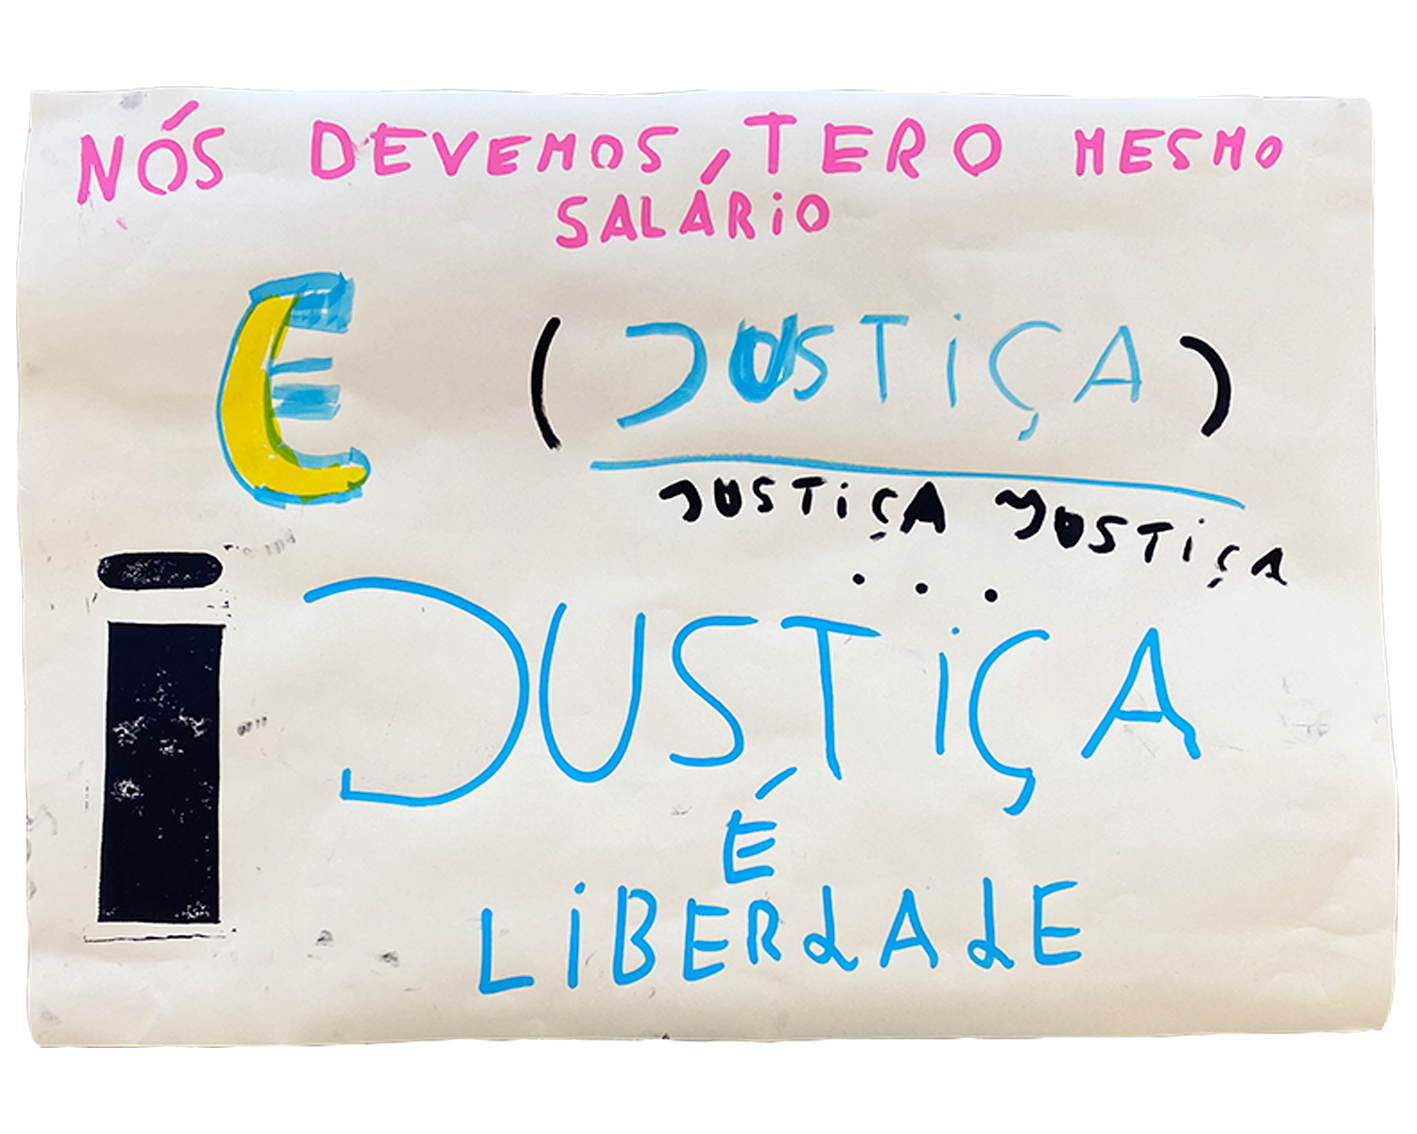 NÓS DEVEMOS, TERO MESMO
SALÁRiO
E (JUSTiÇA)
JUSTiÇA JUSTiÇA
...
i JUSTiÇA
É
LiBERdAdE